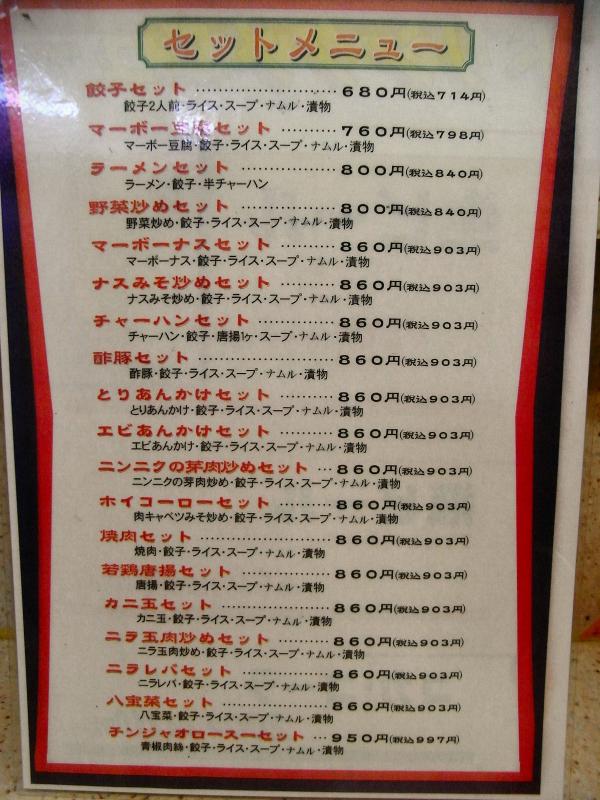 セットメニュー
餃子セット ……………………… 680円(税込714円)
餃子2人前・ライス・スープ・ナムル・漬物
マーボー豆腐セット ………… 760円(税込798円)
マーボー豆腐・餃子・ライス・スープ・ナムル・漬物
ラーメンセット ……………… 800円(税込840円)
ラーメン・餃子・半チャーハン
野菜炒めセット ……………… 800円(税込840円)
野菜炒め・餃子・ライス・スープ・ナムル・漬物
マーボーナスセット ………… 860円(税込903円)
マーボーナス・餃子・ライス・スープ・ナムル・漬物
ナスみそ炒めセット ………… 860円(税込903円)
ナスみそ炒め・餃子・ライス・スープ・ナムル・漬物
チャーハンセット …………… 860円(税込903円)
チャーハン・餃子・唐揚1ヶ・スープ・ナムル・漬物
酢豚セット …………………… 860円(税込903円)
酢豚・餃子・ライス・スープ・ナムル・漬物
とりあんかけセット ………… 860円(税込903円)
とりあんかけ・餃子・ライス・スープ・ナムル・漬物
エビあんかけセット ………… 860円(税込903円)
エビあんかけ・餃子・ライス・スープ・ナムル・漬物
ニンニクの芽肉炒めセット … 860円(税込903円)
ニンニクの芽肉炒め・餃子・ライス・スープ・ナムル・漬物
ホイコーローセット ………… 860円(税込903円)
肉キャベツみそ炒め・餃子・ライス・スープ・ナムル・漬物
焼肉セット …………………… 860円(税込903円)
焼肉・餃子・ライス・スープ・ナムル・漬物
若鶏唐揚セット ……………… 860円(税込903円)
唐揚・餃子・ライス・スープ・ナムル・漬物
カニ玉セット ………………… 860円(税込903円)
カニ玉・餃子・ライス・スープ・ナムル・漬物
ニラ玉肉炒めセット ………… 860円(税込903円)
ニラ玉肉炒め・餃子・ライス・スープ・ナムル・漬物
ニラレバセット ……………… 860円(税込903円)
ニラレバ・餃子・ライス・スープ・ナムル・漬物
八宝菜セット ………………… 860円(税込903円)
八宝菜・餃子・ライス・スープ・ナムル・漬物
チンジャオロースーセット … 950円(税込997円)
青椒肉絲・餃子・ライス・スープ・ナムル・漬物